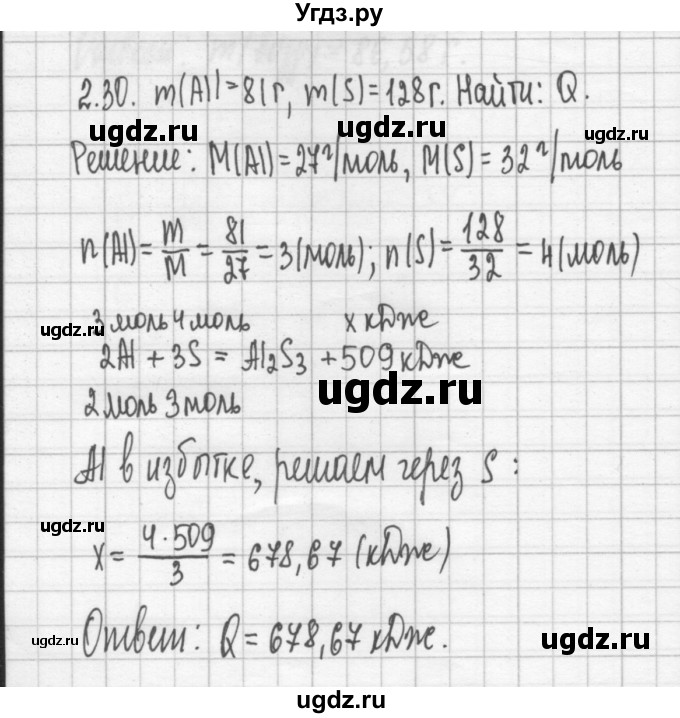 Угдз.ру
2.30. m(Al)=81г, m(S)=128г. Найти: Q.
ugdz.ru ugdz.ru
Решение: M(Al)=27г/моль, M(S)=32г/моль
n(Al)=m/M=81/27=3(моль); n(S)=128/32=4(моль)
ugdz.ru
3 моль 4 моль x кДж
2Al + 3S = Al₂S₃ + 509 кДж
ugdz.ru
2 моль 3 моль
Al в избытке, решаем через S:
ugdz.ru
x=4·509/3=678,67 (кДж)
Ответ: Q=678,67 кДж.
ugdz.ru ugdz.ru ugdz.ru
ugdz.ru